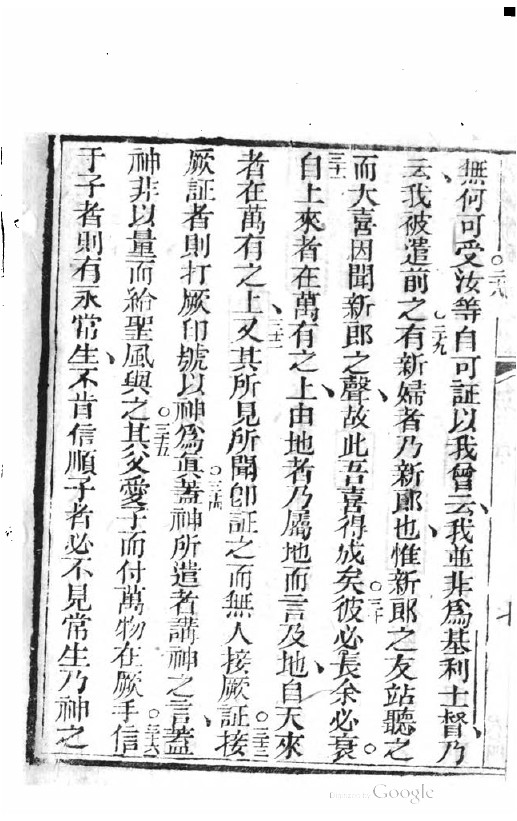 無何可受汝等自可証以我曾云我並非爲基利士督乃
云我被遣前之有新婦者乃新郎也惟新郎之友站聽之
而大喜因聞新郎之聲故此吾喜得成矣彼必長余必衰
自上來者在萬有之上由地者乃屬地而言及地自天來
者在萬有之上又其所見所聞卽証之而無人接厥証接
厥証者則打厥印號以神爲眞蓋神所遣者講神之言蓋
神非以量而給聖風與之其父愛子而付萬物在厥手信
于子者則有永常生不肯信順子者必不見常生乃神之
Digitized by Google